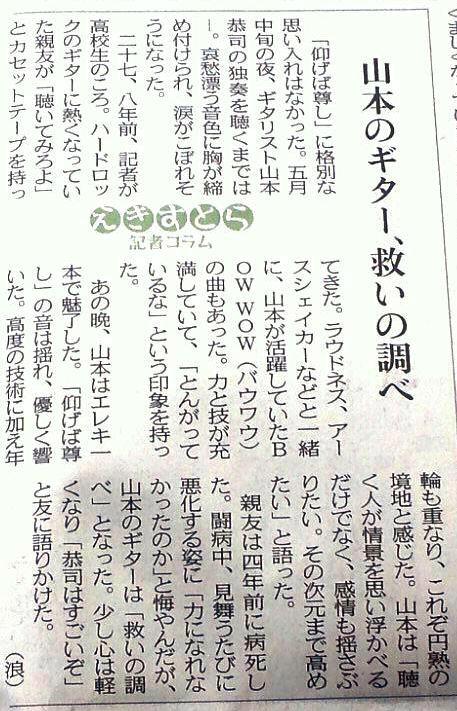 山本のギター、救いの調べ
えきすとら
記者コラム
「仰げば尊し」に格別な
思い入れはなかった。五月
中旬の夜、ギタリスト山本
恭司の独奏を聴くまでは
―。哀愁漂う音色に胸が締
め付けられ、涙がこぼれそ
うになった。
二十七、八年前、記者が
高校生のころ。ハードロッ
クのギターに熱くなってい
た親友が「聴いてみろよ」
とカセットテープを持っ
てきた。ラウドネス、アー
スシェイカーなどと一緒
に、山本が活躍していたB
OW WOW（バウワウ）
の曲もあった。力と技が充
満していて、「とんがって
いるな」という印象を持っ
た。
あの晩、山本はエレキ一
本で魅了した。「仰げば尊
し」の音は揺れ、優しく響
いた。高度の技術に加え年
輪も重なり、これぞ円熟の
境地と感じた。山本は「聴
く人が情景を思い浮かべる
だけでなく、感情も揺さぶ
りたい。その次元まで高め
たい」と語った。
親友は四年前に病死し
た。闘病中、見舞うたびに
悪化する姿に「力になれな
かったのか」と悔やんだが、
山本のギターは「救いの調
べ」となった。少し心は軽
くなり「恭司はすごいぞ」
と友に語りかけた。
（浪）